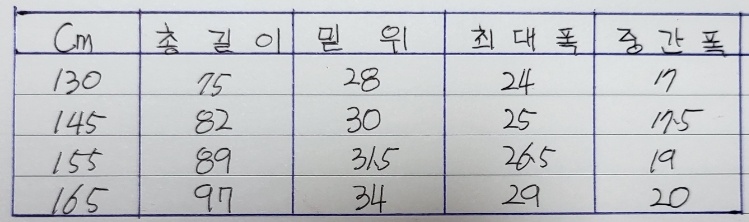 Cm 총길이 밑위 최대폭 중간폭
130 75 28 24 17
145 82 30 25 17.5
155 89 31.5 26.5 19
165 97 34 29 20